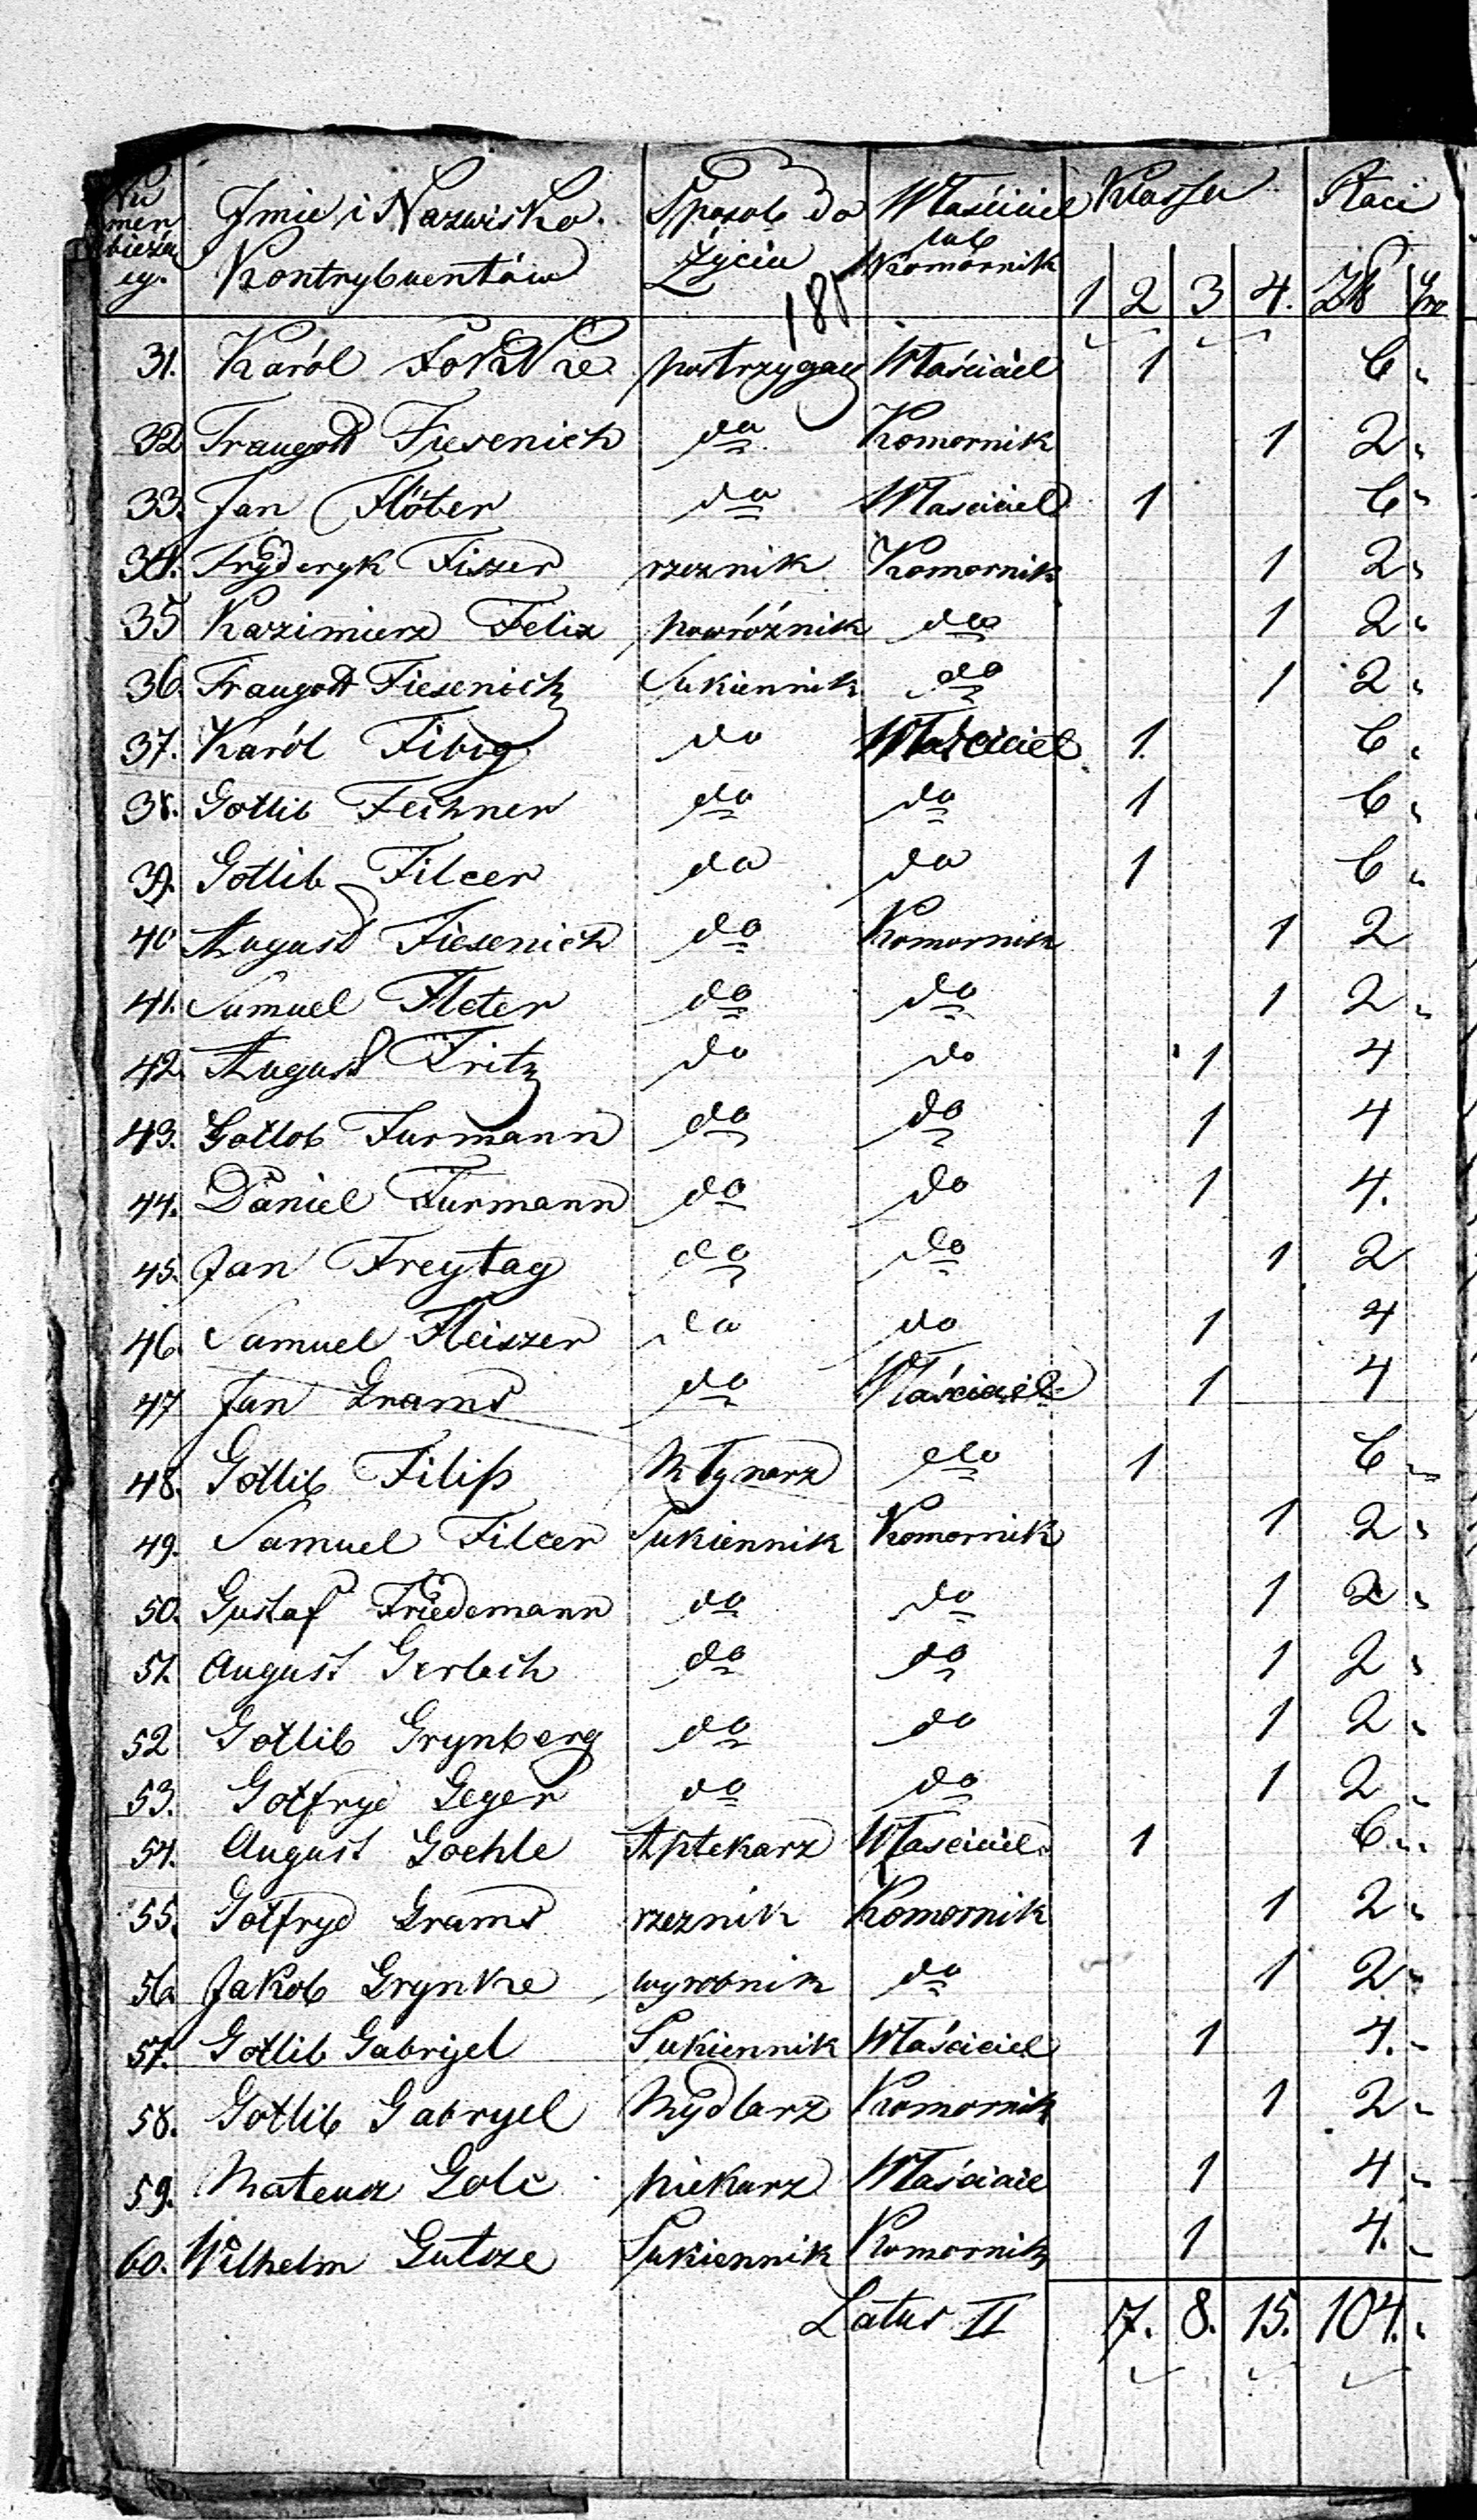 Nu mer bieżą cy. Jmie i Nazwisko Kontrybuentów Sposob do Życia Właściciel lub Komornik Klassa 1 2 3 4. Płaci Złł gro
185
31. Karól Fokke postrzygacz Właściciel 1 6 "
32 Traugott Fiesenich do Komornik 1 2 "
33. Jan Flöter do Właściciel 1 6 "
34. Fryderyk Fiszer rzeznik Komornik 1 2 "
35 Kazimierz Felix powróźnik do 1 2 "
36 Traugott Fiesenich Sukiennik do 1 2 "
37. Karól Fibig do Właściciel 1. 6 "
38. Gotlib Fechner do do 1 6 "
39. Gotlib Filcer do do 1 6 "
40 August Fiesenich do Komornik 1 2
41. Samuel Fleter do do 1 2 "
42 August Fritz do do 1 4
43. Gotlob Furmann do do 1 4
44. Daniel Furmann do do 1 4.
45. Jan Freytag do do 1 2
46. Samuel Fleiszer do do 1 4
47 Jan Grams do Właściciel 1 4
48. Gotlib Filip Młynarz do 1 6 "
49. Samuel Filcer Sukiennik Komornik 1 2 "
50. Gustaf Friedemann do do 1 2 "
51. August Gerlach do do 1 2 "
52 Gotlib Grynberg do do 1 2 "
53. Gotfryd Geger do do 1 2 "
54. August Goehle Aptekarz Właściciel 1 6 "
55. Gotfryd Grams rzeznik Komornik 1 2 "
56 Jakob Grynke wyrobnik do 1 2 "
57. Gotlib Gabryel Sukiennik Właściciel 1 4. "
58. Gotlib Gabryel Mydlarz Komornik 1 2 "
59. Mateusz Golc piekarz Właściciel 1 4 "
60. Wilhelm Gutsze Sukiennik Komornik 1 4. "
Latus II 7. 8. 15. 104. "